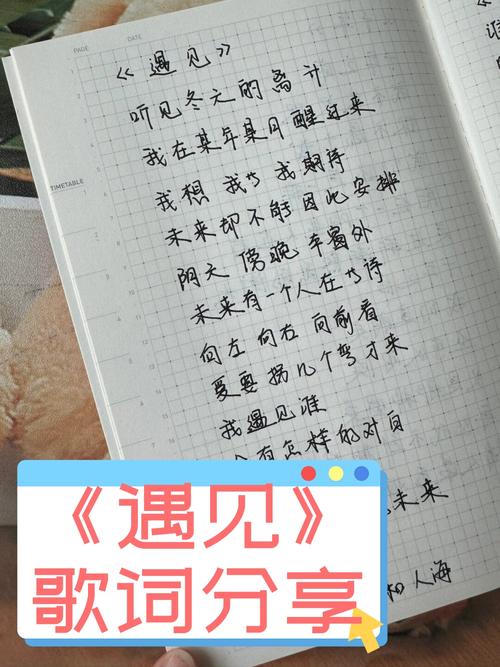 PAGE DATE
《遇见》
听见冬天的离开
我在某年某月醒过来
TIMETABLE
我想 我等 我期待
未来却不能因此安排
阴天 傍晚 车窗外
未来有一个人在等待
向左 向右 向前看
爱要拐几个弯才来
我遇见谁
有怎样的对白
未来
人海
《遇见》
歌词分享